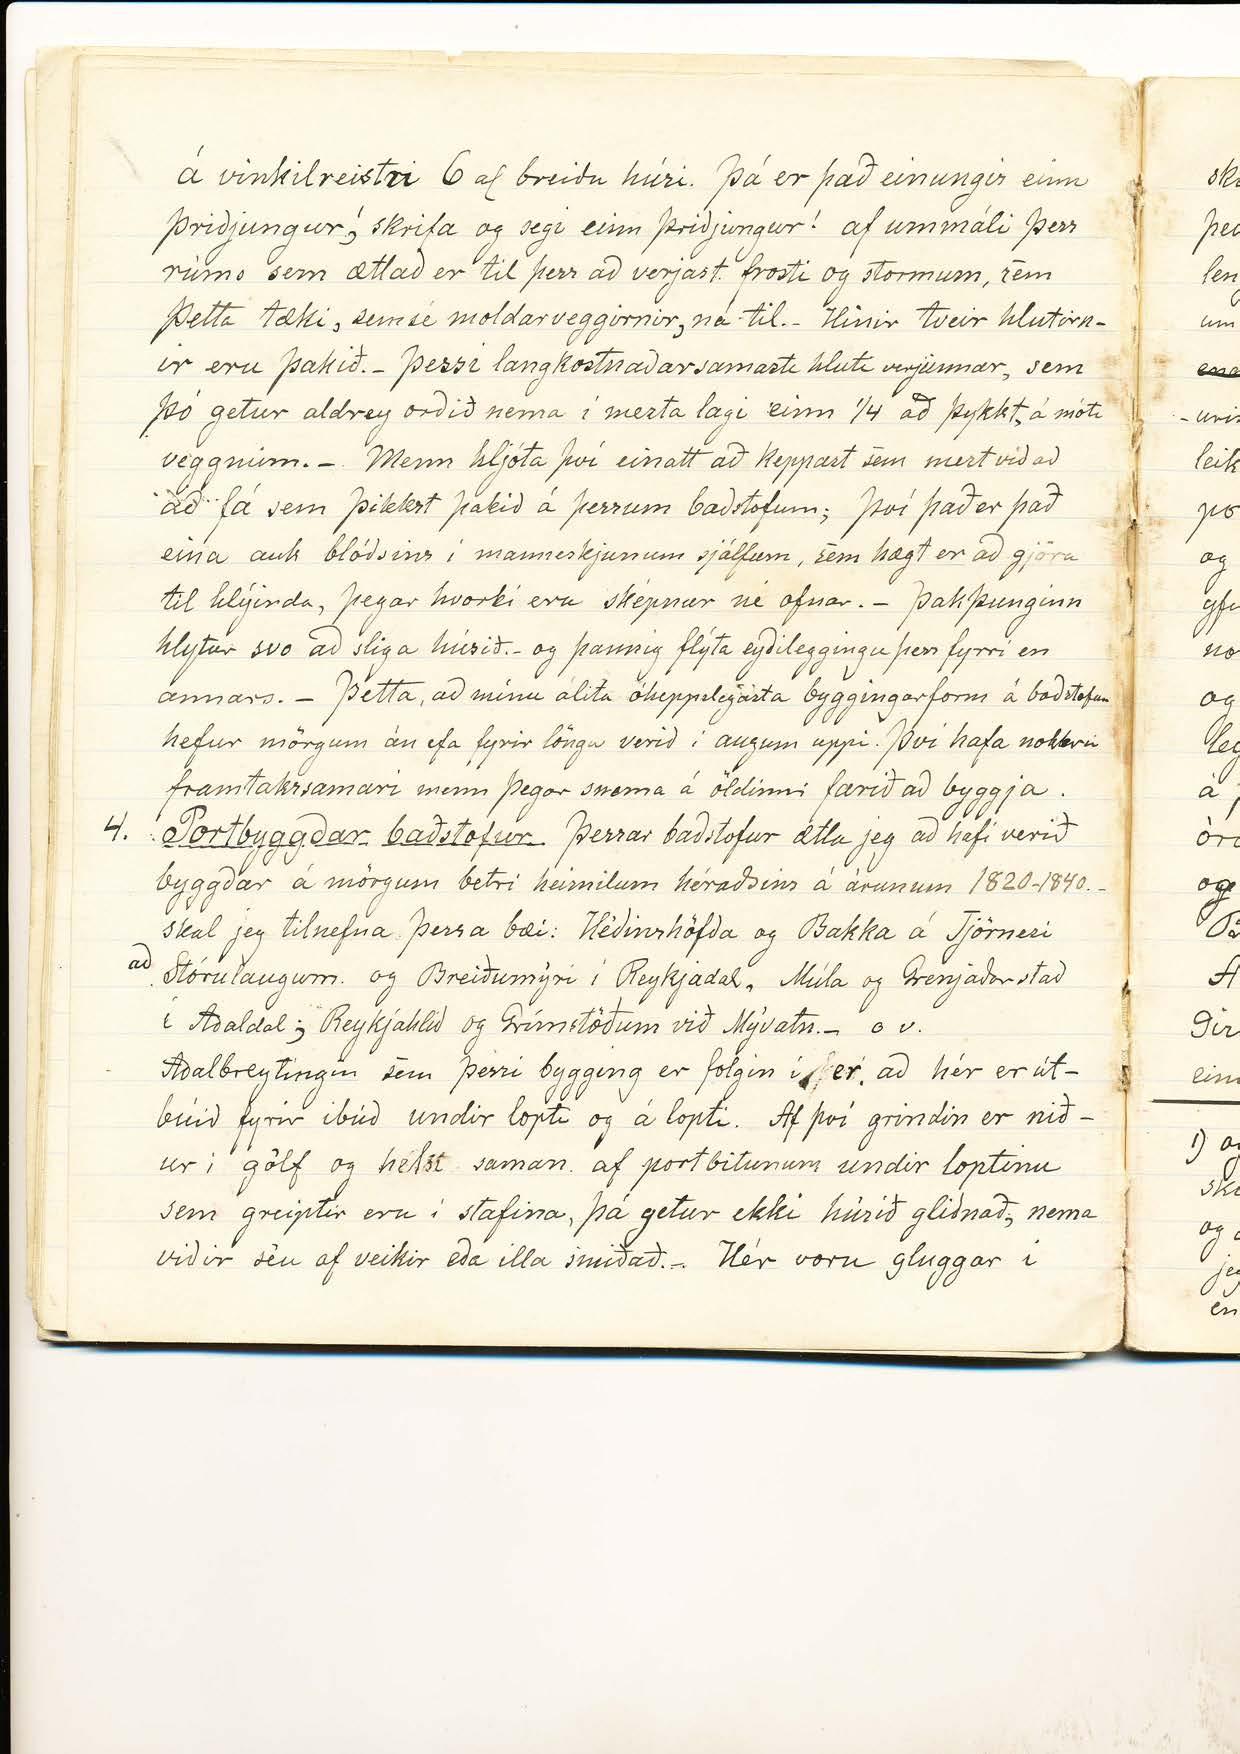 á vinkilreistri 6 al breiðu húsi. Þá er það einungis einn
þriðjungur, skrifa og segi einn þriðjungur! af ummáli þess
rúms sem ætlað er til þess að verjast frosti og stormum, sem
þetta tæki, semsé moldarveggirnir, ná til.- Hinir tveir hlutirn-
ir eru þakið.- Þessi langkostnaðarsamasti hluti verjunnar, sem
þó getur aldrey orðið nema í mesta lagi einn 1/4 að þykkt, á móti
veggnum.- Menn hljóta því einatt að keppast sem mest við að
að fá sem þikkst þakið á þessum baðstofum; því það er það
eina auk blóðsins í manneskjunum sjálfum, sem hægt er að gjöra
til hlýinda, þegar hvorki eru sképnur né ofnar.- Þakþunginn
hlytur svo að sliga húsið.- og þannig flýta eyðileggingu þess fyrri en
annars.- Þetta, að mínu áliti óheppilegasta byggingarform á baðstofum
hefur mörgum án efa fyrir löngu verið í augum uppi. Því hafa nokkrir
framtakssamari menn þegar snema á öldinni farið að byggja.
4. Portbyggðar baðstofur. Þessar baðstofur ætla jeg að hafi verið
byggðar á mörgum betri heimilum héraðsins á árunum 1820-1840.-
skal jeg tilnefna þessa bæi: Héðinshöfða og Bakka á Tjörnesi
að Stórulaugum og Breiðumýri í Reykjadal, Múla og Grenjaðarstað
í Aðaldal; Reykjahlíð og Grímstöðum við Mývatn.- o v.
Aðalbreytingin sem þessi bygging er fólgin í er, að hér er út-
búið fyrir íbúð undir lopti og á lopti. Af því grindin er nið-
ur í gólf og helst saman af portbitunum undir loptinu
sem greiptir eru í stafina, þá getur ekki húsið gliðnað, nema
viðir séu of veikir eða illa smiðað.- Hér voru gluggar í